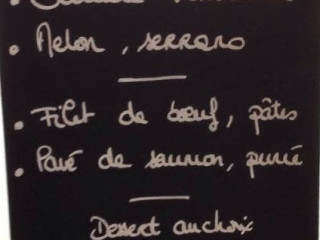 • Melon, serrano
• Filet de bœuf, pâtes
• Pavé de saumon, purée
Dessert au choix